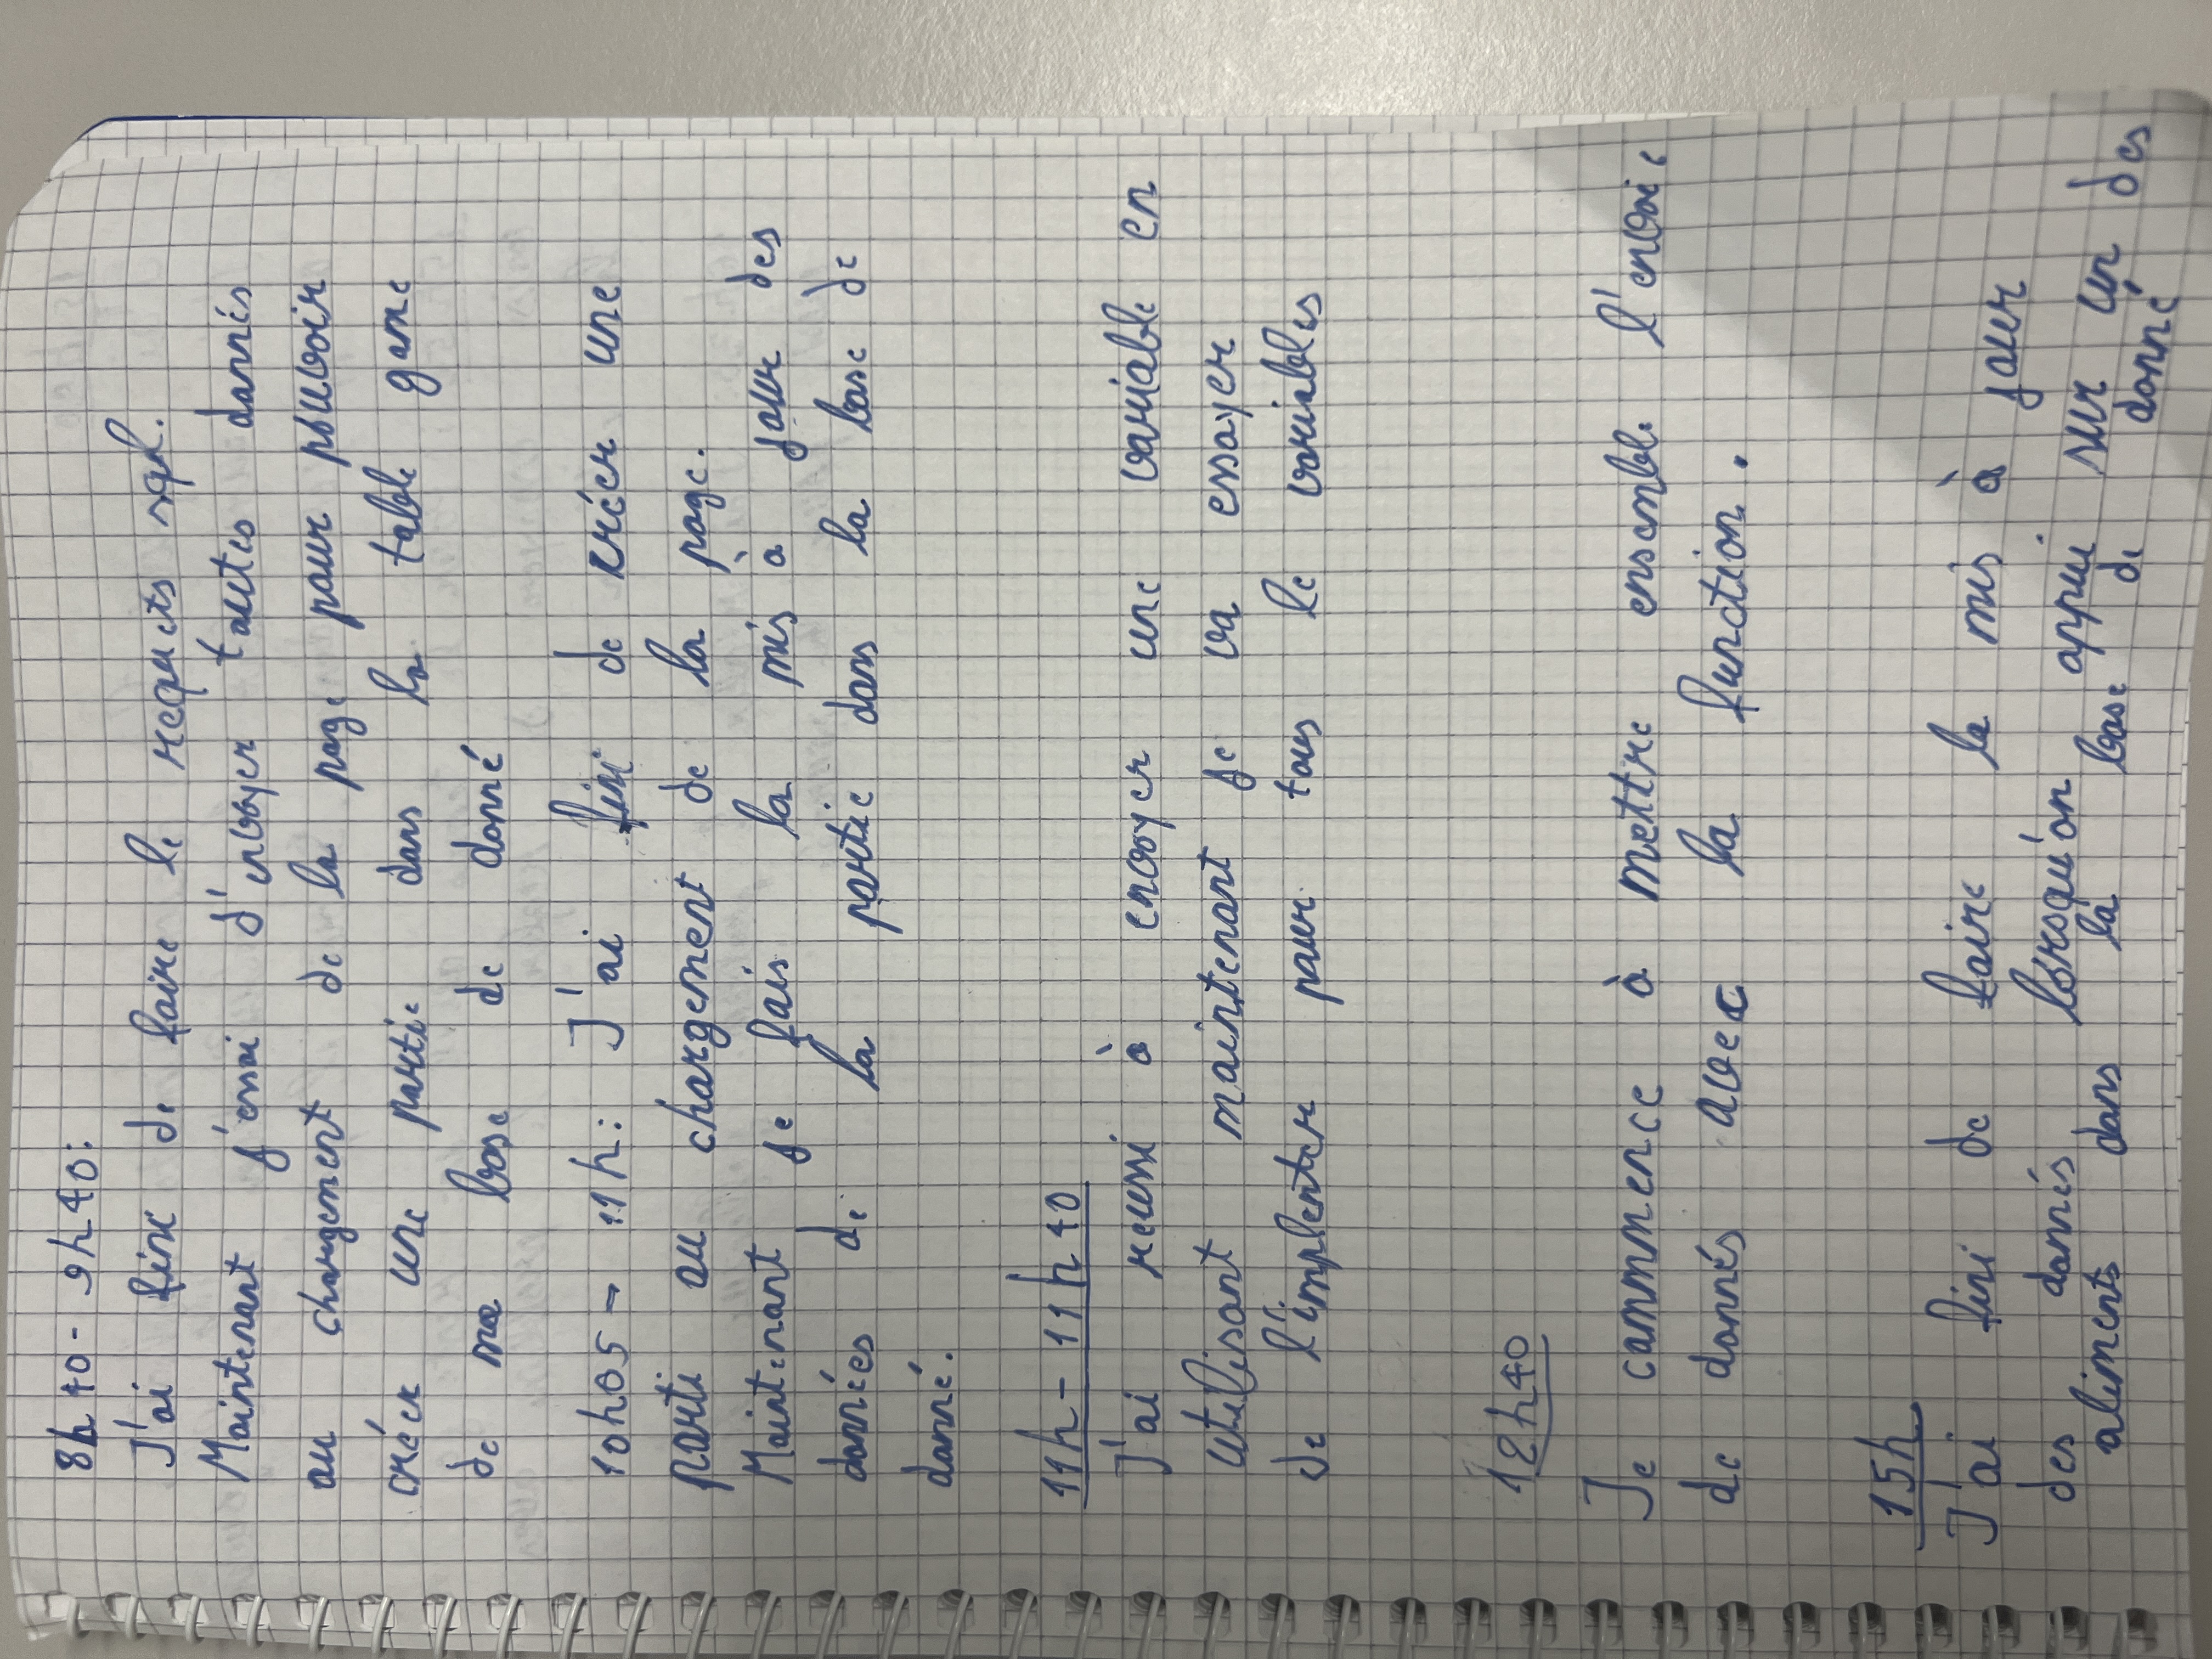 8h40 - 9h40:
J'ai fini de faire le requets sql.
Maintenant j'essai d'envoyer toutes donnés
au chargement de la page pour pouvoir
créer une partie dans la table game
de ma base de donné
10h05 - 11h: J'ai fini de créer une
parti au chargement de la page.
Maintenant je fais la mis à jour des
données de la partie dans la base de
donné.
11h - 11h40
J'ai reussi à envoyer une variable en
utilisant maintenant je va essayer
de l'implenter pour tous le variables
12h40
Je cammmence à mettre ensemble l'envoie
de donnés avec la function.
15h
J'ai fini de faire la mis à jour
des donnés lorsqu'on appui sur un des
aliments dans la base de donné